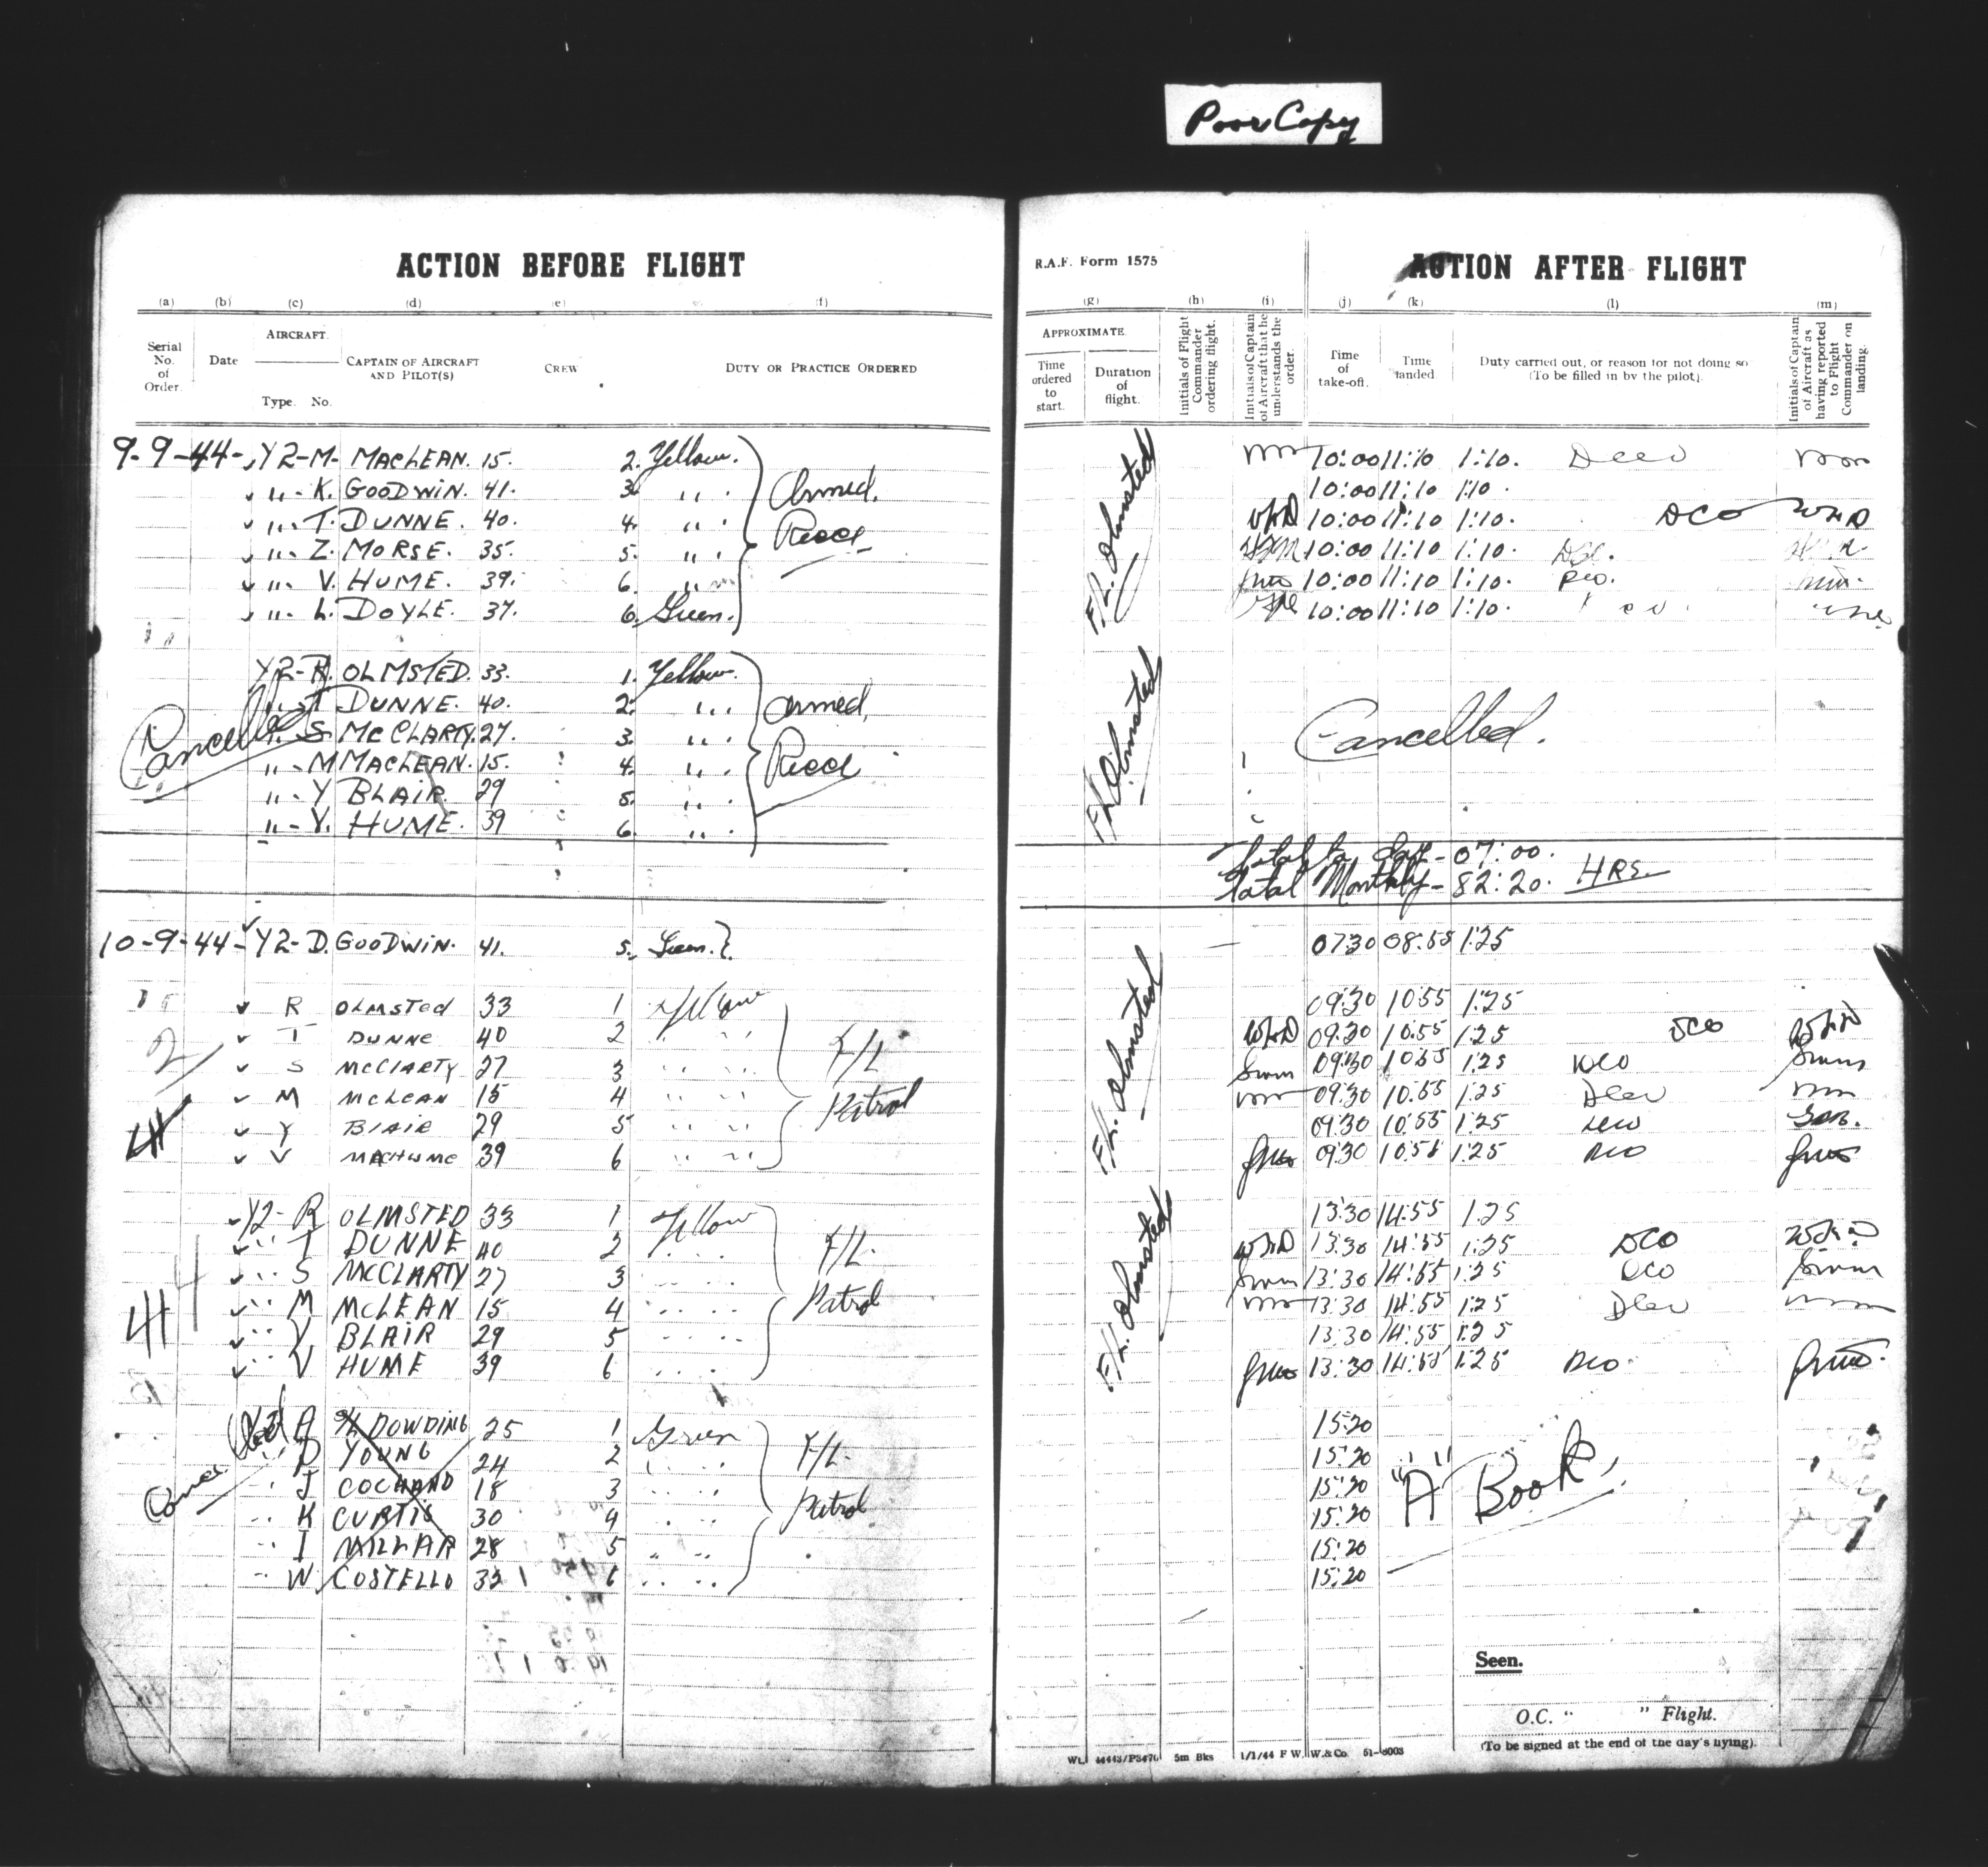 Poor Copy
ACTION BEFORE FLIGHT
(a) (b) (c) (d) (e) (f)
Serial No. of Order.
Date
AIRCRAFT.
Type. No.
CAPTAIN OF AIRCRAFT AND PILOT(S)
CREW
DUTY OR PRACTICE ORDERED
9-9-44- Y2-M- MACLEAN. 15. 2. Yellow.
" - K. GOODWIN. 41. 3. " Armed.
" - T. DUNNE. 40. 4. " Recce
" - Z. MORSE. 35. 5. "
" - V. HUME. 39. 6. "
" - L. DOYLE. 37. 6. Green.
Y2-R. OLMSTED. 33. 1. Yellow.
DUNNE. 40. 2. " Armed,
Cancelled S McCLARTY. 27. 3. "
" - M MACLEAN. 15. 4. " Recce
" - Y BLAIR 29 5. "
" - V. HUME. 39 6. "
10-9-44- Y2-D. GOODWIN. 41. 5. Green.
R OLMSTED 33 1 Yellow
T DUNNE 40 2 " " F/L
S McCLARTY 27 3 " "
M McLEAN 15 4 " " Patrol
Y BLAIR 29 5 " "
V HUME 39 6 " "
Y2- R OLMSTED 33 1 Yellow
" T DUNNE 40 2 " " F/L.
" S McCLARTY 27 3 " "
" M McLEAN 15 4 " " Patrol
" Y BLAIR 29 5 " "
" V HUME 39 6 " "
A DOWDING 25 1 Green
D YOUNG 24 2 " " F/L.
" J COCHAND 18 3 " "
" K CURTIS 30 4 " " Patrol
" I MILLAR 28 5 " "
" W COSTELLO 32 6 " "
R.A.F. Form 1575
ACTION AFTER FLIGHT
(g) (h) (i) (j) (k) (l) (m)
APPROXIMATE.
Time ordered to start.
Duration of flight.
Initials of Flight Commander ordering flight.
Initials of Captain of Aircraft that he understands the order.
Time of take-off.
Time landed.
Duty carried out, or reason for not doing so (To be filled in by the pilot).
Initials of Captain of Aircraft as having reported to Flight Commander on landing.
F/L. Olmsted
10:00 11:10 1:10.
10:00 11:10 1:10.
WHD 10:00 11:10 1:10. DCO WHD
10:00 11:10 1:10.
10:00 11:10 1:10. DCO.
10:00 11:10 1:10.
F/L Olmsted
Cancelled.
Total to day - 07:00.
Total Monthly - 82:20. HRS.
F/L. Olmsted
07:30 08:55 1:25
09:30 10:55 1:25
WHD 09:30 10:55 1:25 DCO WHD
09:30 10:55 1:25 DCO
09:30 10:55 1:25
09:30 10:55 1:25 DCO
09:30 10:55 1:25 DCO
F/L. Olmsted
13:30 14:55 1:25
WHD 13:30 14:55 1:25 DCO WHD
13:30 14:55 1:25 DCO
13:30 14:55 1:25
13:30 14:55 1:25
13:30 14:55 1:25 DCO
15:20
15:20
15:20 "A" Book
15:20
15:20
15:20
Seen.
O.C. " " Flight.
(To be signed at the end of the day's flying).
5m Bks 1/1/44 F.W.W.&Co.